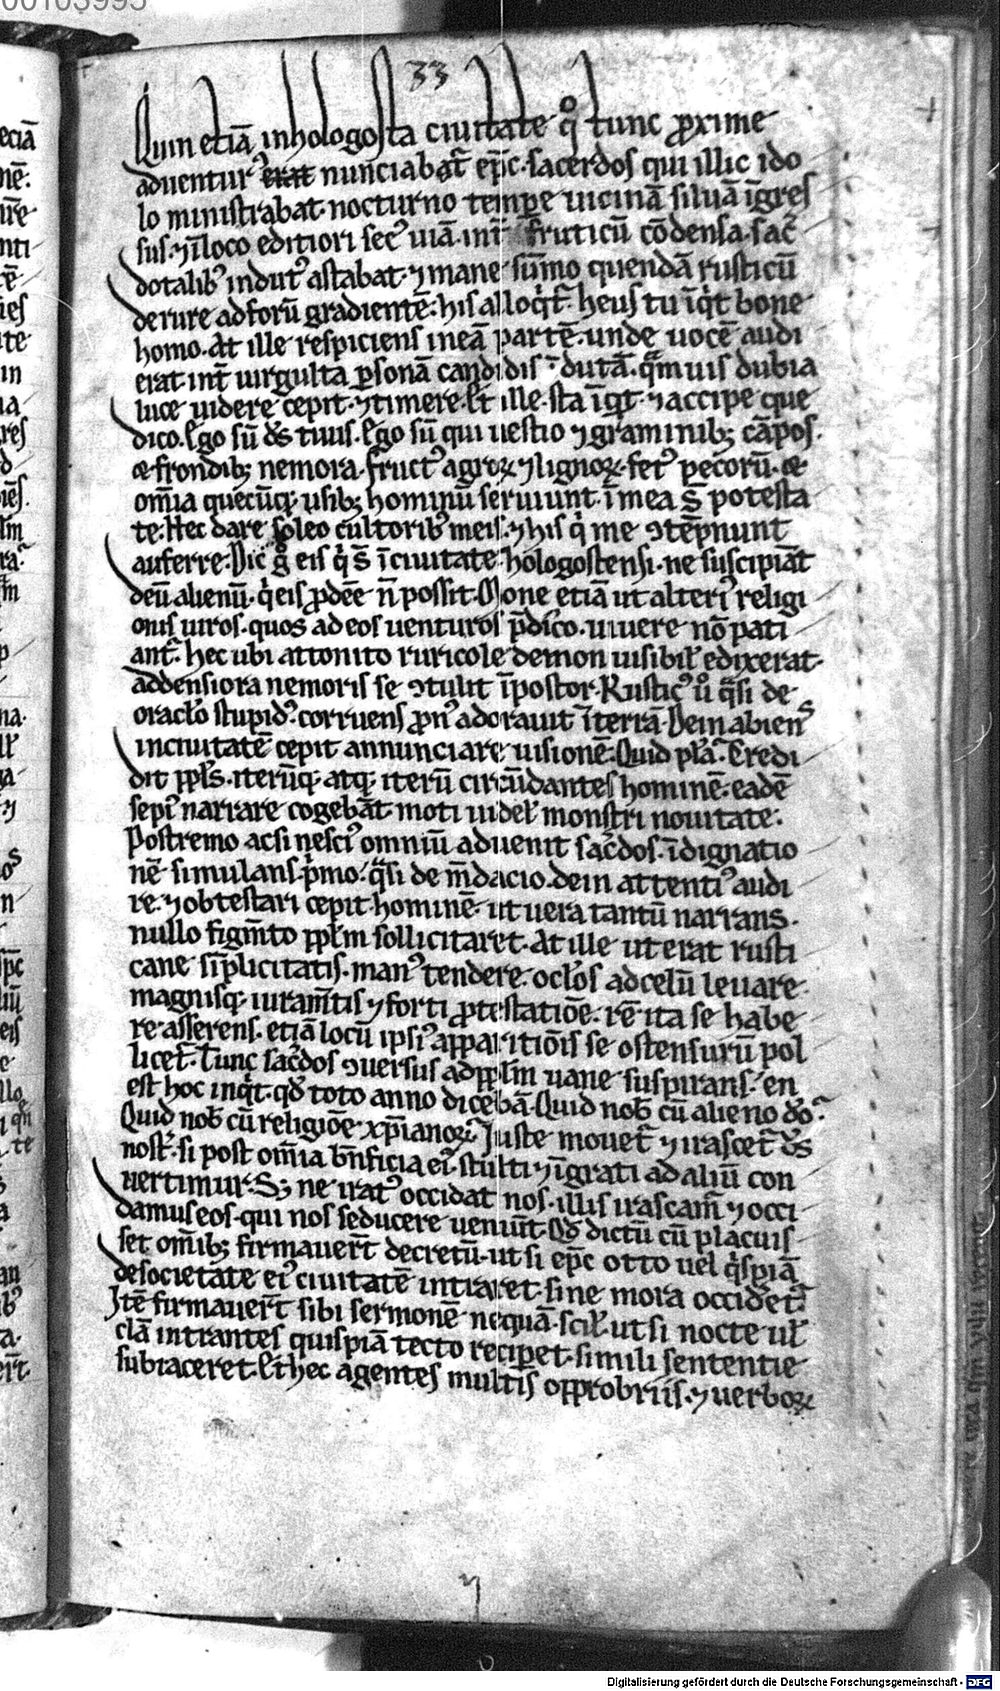 00103995
33
Quin etiā inhologosta ciuitate q̊ tunc ꝓxime
aduentur᾽ erat nunciabat᷑ ep̄c. sacerdos qui illic ido
lo ministrabat. nocturno tempe uicinā siluā īgres
sus. ⁊ īloco editiori sec᾽ uiā. int᷑ fruticū cōdensa. sac᷑
dotalib᾽ indut᾽ astabat. ⁊ mane sūmo quendā rusticū
de rure ad forū gradientē. his alloqt᷑. heus tu īqt bone
homo. At ille respiciens ineā partē. unde uocē audi
erat int᷑ uirgulta ꝑsonā candidis īdutā. qᵃmuis dubia
luce uidere cepit. ⁊ timere. Et ille. sta īqt. ⁊ accipe que
dico. Ego sū ds̄ tuus. Ego sū qui uestio ⁊ graminibꝫ cāpos.
⁊ frondibꝫ nemora. fruct᾽ agroꝝ ⁊ lignoꝝ. fet᾽ pecorū. ⁊
om̄ia quecūqꝫ usibꝫ hominū seruiunt. ī mea s̄ potesta
te. Hec dare soleo cultorib᾽ meis. ⁊ his q̇ me ꝯtēpnunt
auferre. Dic g̊ eis q̇ s̄ īciuitate hologostensi. ne suscipiāt
deū alienū. q̇ eis ꝓdēe n̄ possit. Mone etiā ut alteri᾽ religi
onis uiros. quos ad eos uenturos p̄dico. uiuere nō pati
ant᷑. hec ubi attonito ruricole demon uisibil᷑ edixerat.
ad densiora nemoris se ꝯtulit īpostor. Rustic᾽ ů qᵃsi de
oraclo stupid᾽. corruens ꝓn᾽ adorauit īterrā. Dein abiens
inciuitatē cepit annunciare uisionē. Quid plᵃ. Credi
dit ppl̄s. iterūqꝫ atqꝫ iterū circūdantes hominē. eadē
sepi᾽ narrare cogebāt. moti uidel᷑ monstri nouitate.
Postremo acsi nesci᾽ omniū aduenit sac᷑dos. īdignatio
nē simulans. p̍mo. qᵃsi de m̄dacio. dein attenti᾽ audi
re. ⁊ obtestari cepit hominē. ut uera tantū narrans.
nullo figm̄to ppl̄m sollicitaret. At ille ut erat rusti
cane sīplicitatis. man᾽ tendere. oclos ad celū leuare.
magnisqꝫ iuram̄tis ⁊ forti ꝓtestatiōe. rē ita se habe
re asserens. etiā locū ipsi᾽ apparitiōis se ostensurū pol
licet᷑. Tunc sac᷑dos ꝯuersus ad ppl̄m uane suspirans. en
est hoc inqt. qd̄ toto anno dicebā. Quid nob̄ cū alieno dō.
Quid nob̄ cū religiōe xp̄ianoꝝ. Juste mouet᷑ ⁊ irascet᷑ ds̄
nost᷑. si post om̄ia bn̄ficia ei᾽. stulti ⁊ īgrati ad aliū con
uertimur. Sꝫ ne irat᾽ occidat nos. illis irascam᷑ ⁊ occi
damus eos. qui nos seducere ueniūt. Qd̄ dictū cū placuis
set om̄ibꝫ firmauer̄t decretū. ut si ep̄c otto uel q̇spiā
de societate ei᾽ ciuitatē intraret. sine mora occideret᷑.
Jtē firmauer̄t sibi sermonē nequā. scil᷑. ut si nocte ul᷑
clā intrantes quispiā tecto reciꝑet. simili sententie
subiaceret. Et hec agentes multis opprobriis. ⁊ uerboꝝ
Digitalisierung gefördert durch die Deutsche Forschungsgemeinschaft - DFG